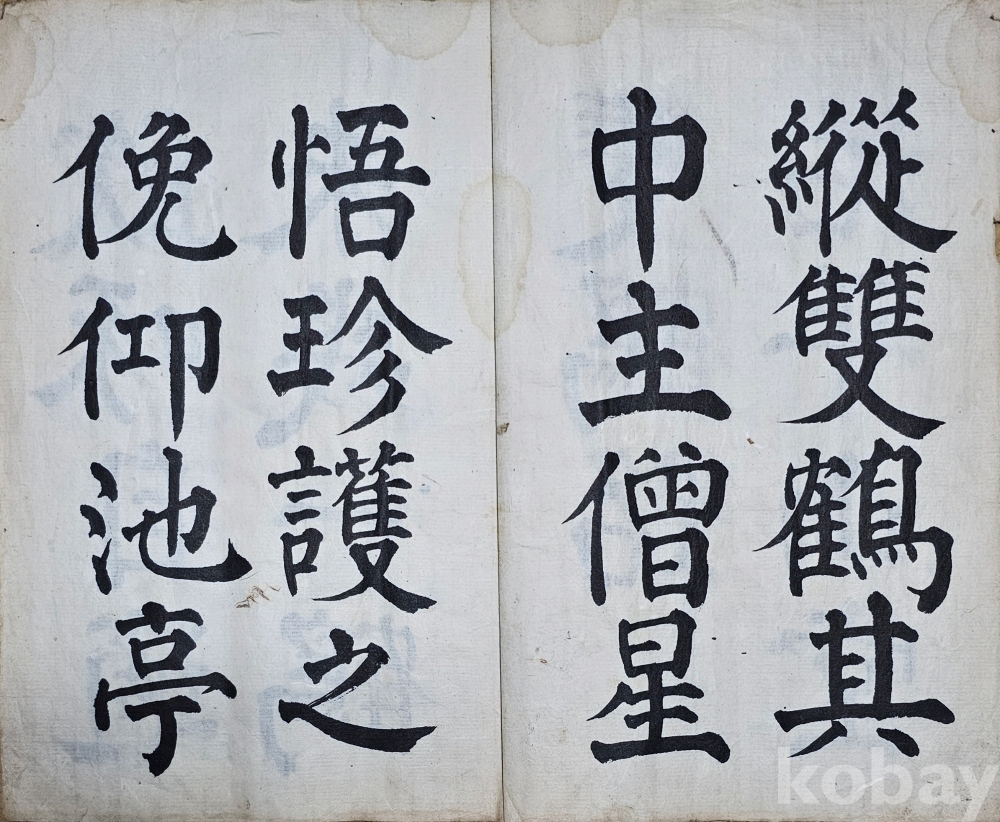 縱雙鶴其
中主僧星
悟珍護之
俛仰池亭
kobay